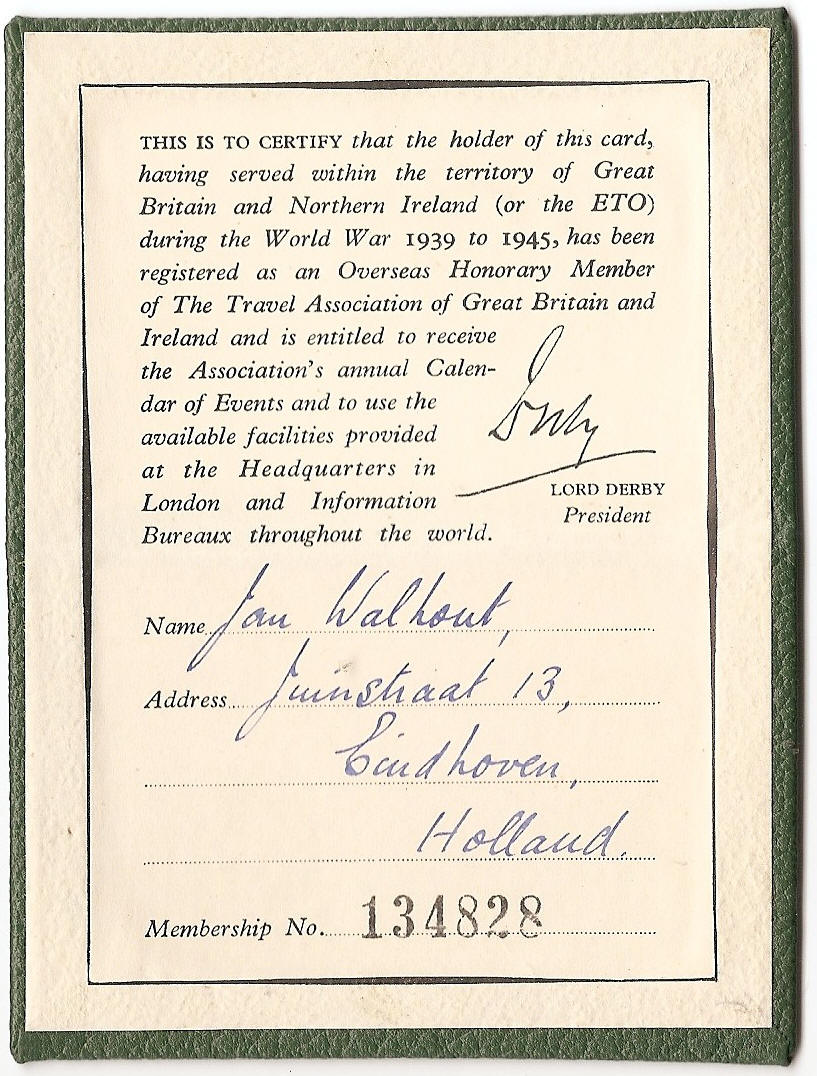 THIS IS TO CERTIFY that the holder of this card,
having served within the territory of Great
Britain and Northern Ireland (or the ETO)
during the World War 1939 to 1945, has been
registered as an Overseas Honorary Member
of The Travel Association of Great Britain and
Ireland and is entitled to receive
the Association's annual Calen-
dar of Events and to use the
available facilities provided
at the Headquarters in
London and Information
Bureaux throughout the world.
Derby
LORD DERBY
President
Name Jan Walhout,
Address Juinstraat 13,
Eindhoven,
Holland.
Membership No. 134828